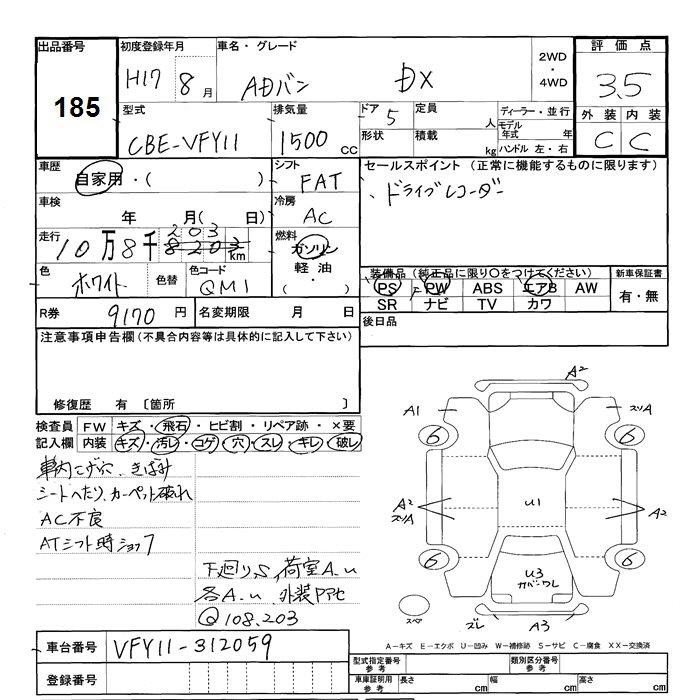 出品番号
185
初度登録年月
H17 8 月
車名・グレード
ADバン DX
2WD
・
4WD
評価点
3.5
外装 内装
C C
型式
CBE-VFY11
排気量
1500 CC
ドア 5
定員 人
形状
積載 kg
ディーラー・並行
モデル年式 年
ハンドル 左・右
車歴
自家用・( )
シフト
FAT
セールスポイント（正常に機能するものに限ります）
、ドライブレコーダー
車検
年 月( 日)
冷房
AC
走行
203
10万8千8203km
燃料
ガソリン
軽油・
( )
色
ホワイト
色替
色コード
QM1
装備品（純正品に限り〇をつけてください）
PS PW ABS エアB AW
SR ナビ TV カワ
新車保証書
有・無
R券 9170 円
名変期限 月 日
後日品
注意事項申告欄(不具合内容等は具体的に記入して下さい)
修復歴 有 〔箇所 〕
検査員記入欄
FW キズ・飛石・ヒビ割・リペア跡・×要
内装 キズ・汚レ・コゲ・穴・スレ・キレ・破レ
車内こげ穴、きばみ
シートへたり、カーペット破れ
AC不良
ATシフト時ショック
下廻りS、荷室A.u
各A.u 外装Pアセ
Q108.203
A2
A1
スリA
6 6
A2
スリA
U1
A2
6 6
U3
カバーワレ
スペア
ズレ
A3
A－キズ E－エクボ U－凹み W－補修跡 S－サビ C－腐食 XX－交換済
車台番号
VFY11-312059
登録番号
型式指定番号
参考
類別区分番号
参考
車庫証明用
参考
長さ cm
幅 cm
高さ cm